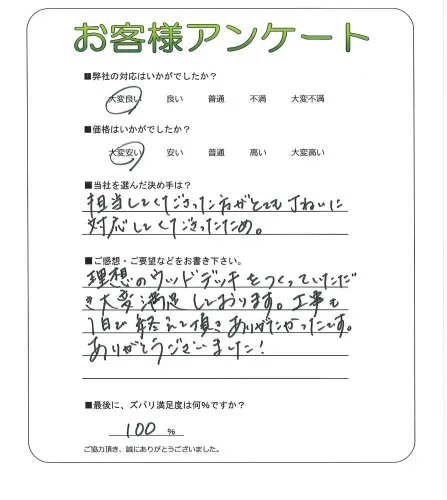 お客様アンケート
■弊社の対応はいかがでしたか?
大変良い 良い 普通 不満 大変不満
■価格はいかがでしたか?
大変安い 安い 普通 高い 大変高い
■当社を選んだ決め手は?
担当してくださった方がとても丁ねいに
対応してくださったため。
■ご感想・ご要望などをお書き下さい。
理想のウッドデッキをつくっていただ
き大変満足しております。工事も
1日で終えて頂きありがたかったです。
ありがとうございました!
■最後に、ズバリ満足度は何%ですか?
100 %
ご協力頂き、誠にありがとうございました。